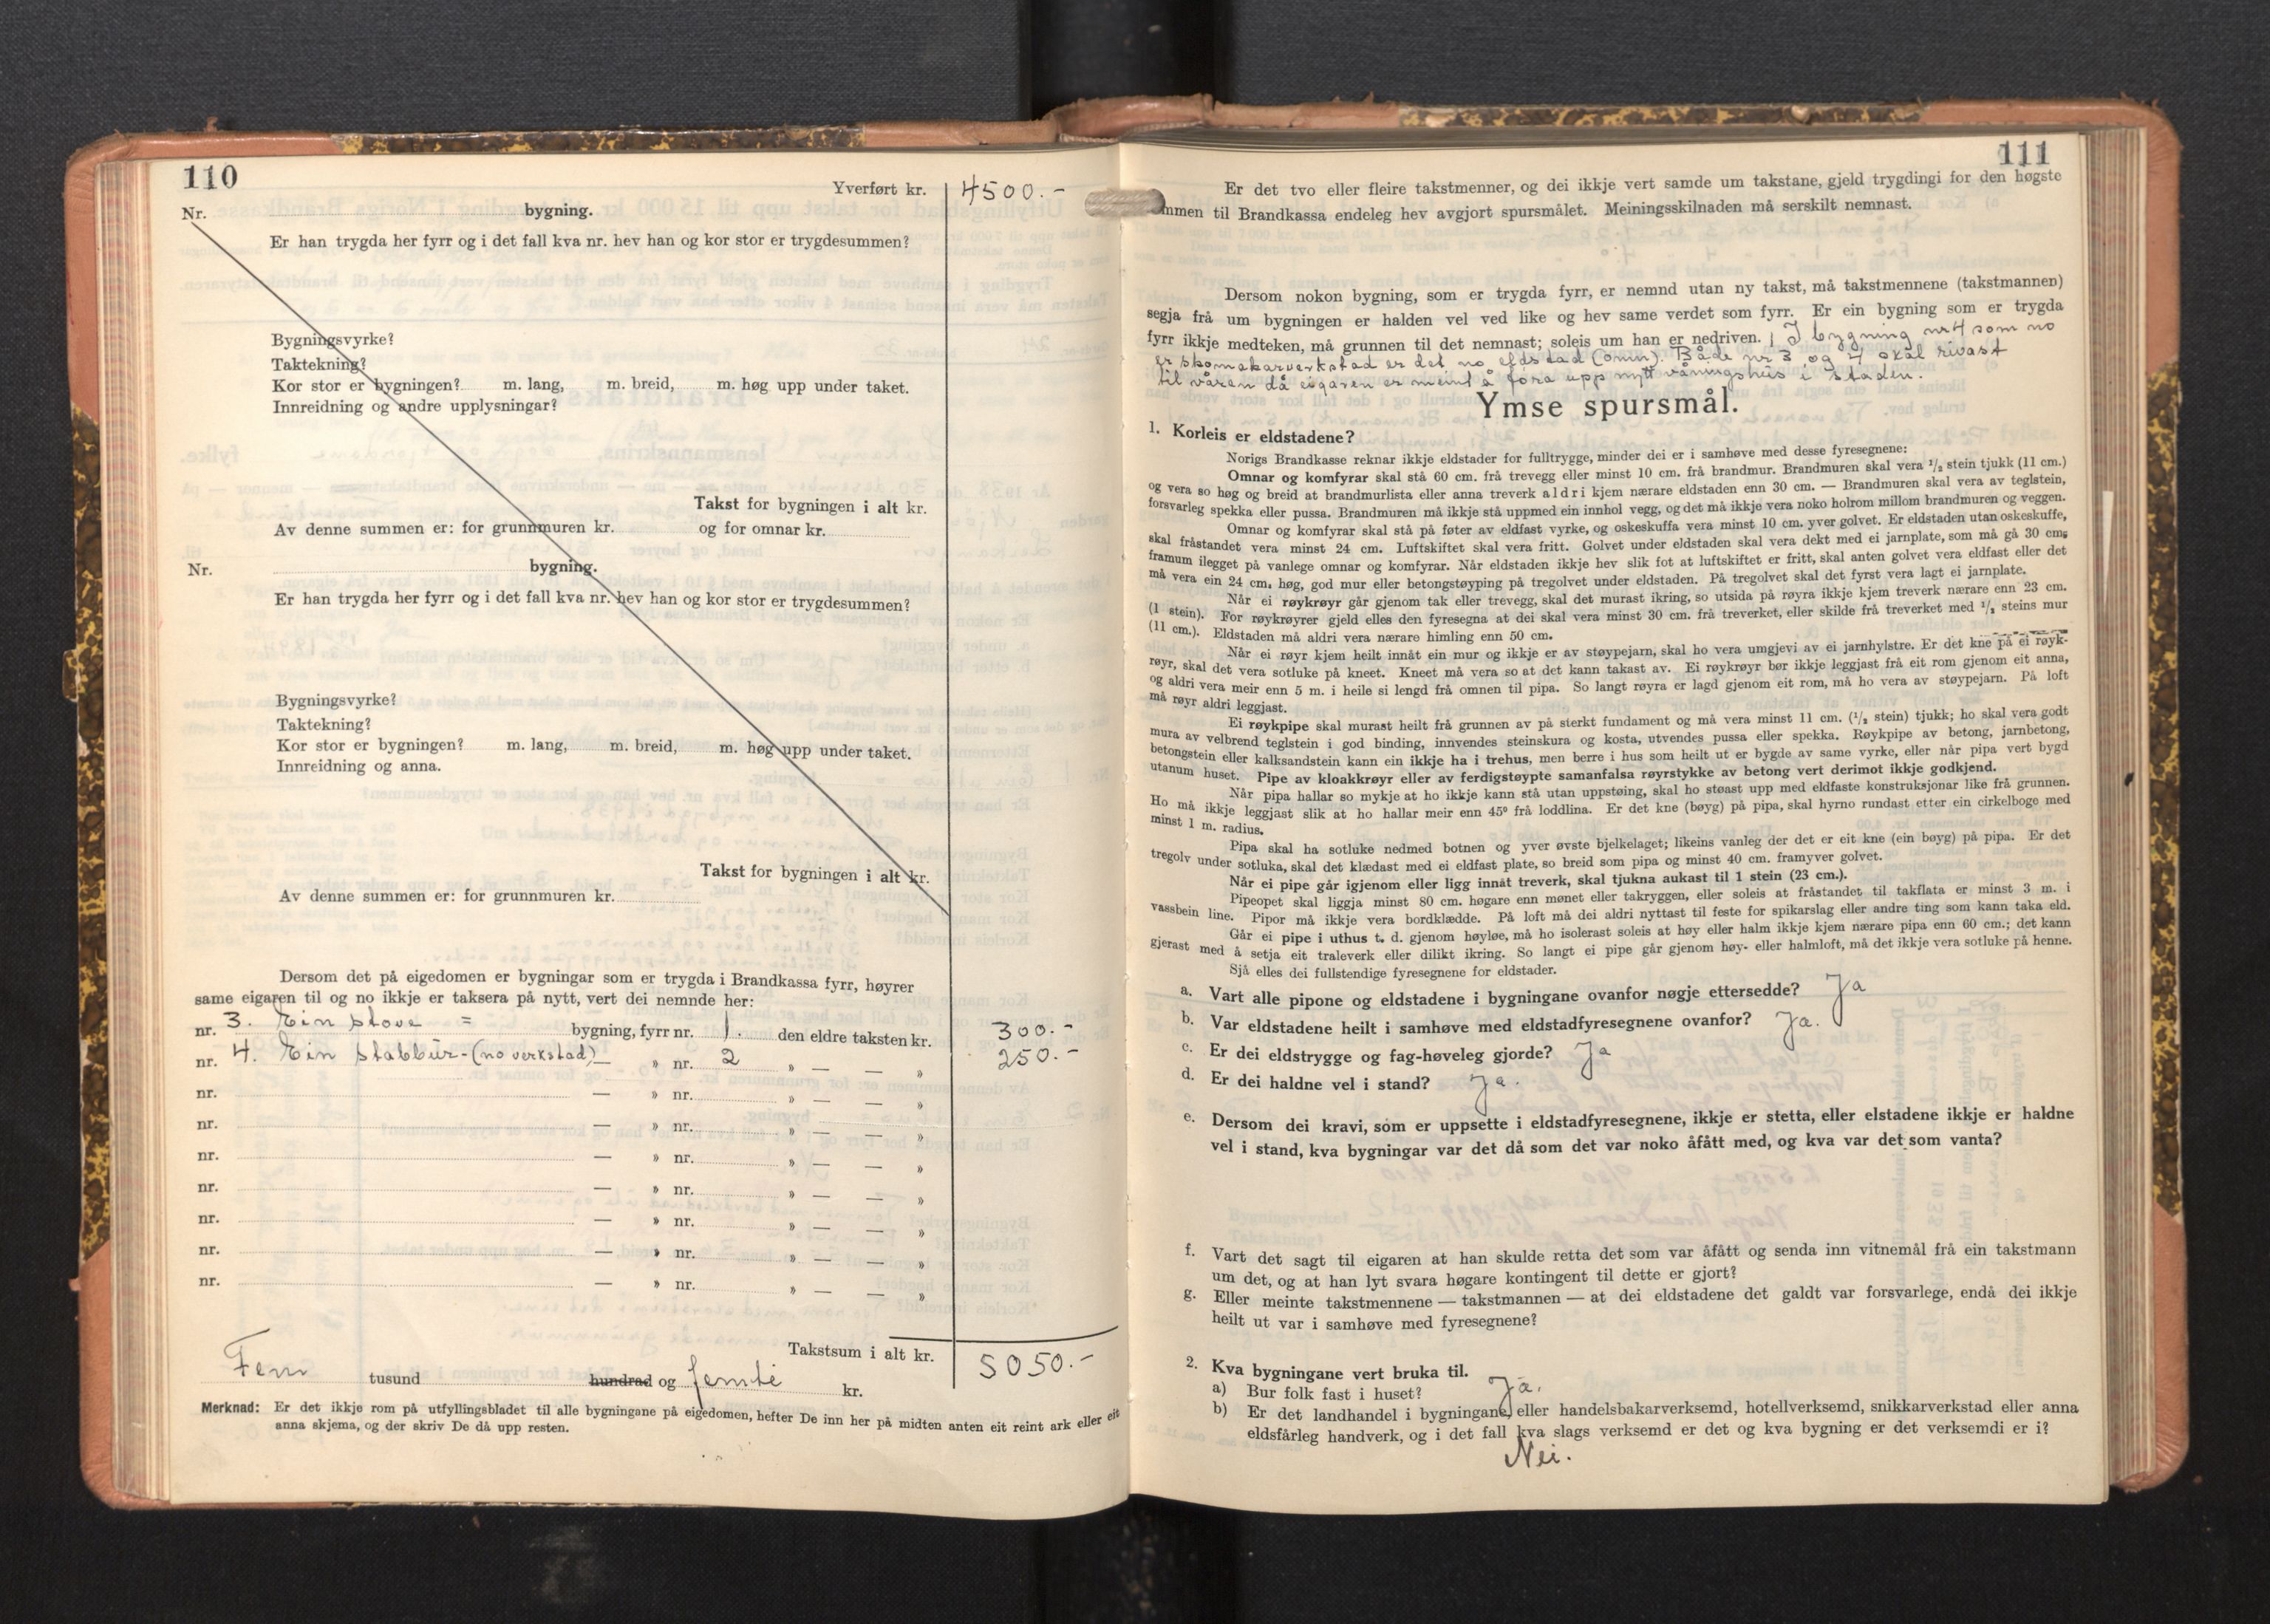 110
Yverført kr. 4500.-
Nr. bygning.
Er han trygda her fyrr og i det fall kva nr. hev han og kor stor er trygdesummen?
Bygningsvyrke?
Taktekning?
Kor stor er bygningen? m. lang, m. breid, m. høg upp under taket.
Innreidning og andre upplysningar?
Takst for bygningen i alt kr.
Av denne summen er: for grunnmuren kr. og for omnar kr.
Nr. bygning.
Er han trygda her fyrr og i det fall kva nr. hev han og kor stor er trygdesummen?
Bygningsvyrke?
Taktekning?
Kor stor er bygningen? m. lang, m. breid, m. høg upp under taket.
Innreidning og anna.
Takst for bygningen i alt kr.
Av denne summen er: for grunnmuren kr.
Dersom det på eigedomen er bygningar som er trygda i Brandkassa fyrr, høyrer
same eigaren til og no ikkje er taksera på nytt, vert dei nemnde her:
nr. 3. Ein stove = bygning, fyrr nr. 1. den eldre taksten kr. 300.-
nr. 4. Ein stabbur-(no verkstad) — » nr. 2 » — — » 250.-
nr. — » nr. » — — »
nr. — » nr. » — — »
nr. — » nr. » — — »
nr. — » nr. » — — »
nr. — » nr. » — — »
nr. — » nr. » — — »
nr. — » nr. » — — »
Takstsum i alt kr. 5050.-
Fem tusund hundrad og femti kr.
Merknad: Er det ikkje rom på utfyllingsbladet til alle bygningane på eigedomen, hefter De inn her på midten anten eit reint ark eller eit
anna skjema, og der skriv De då upp resten.
111
Er det tvo eller fleire takstmenner, og dei ikkje vert samde um takstane, gjeld trygdingi for den høgste
mmen til Brandkassa endeleg hev avgjort spursmålet. Meiningsskilnaden må serskilt nemnast.
Dersom nokon bygning, som er trygda fyrr, er nemnd utan ny takst, må takstmennene (takstmannen)
segja frå um bygningen er halden vel ved like og hev same verdet som fyrr. Er ein bygning som er trygda
fyrr ikkje medteken, må grunnen til det nemnast; soleis um han er nedriven. / I bygning nr 4 som no
er skomakarverkstad er det no eldstad (omn). Både nr 3 og 4 skal rivast
til våren då eigaren er meint å føra upp nytt våningshus i staden.
Ymse spursmål.
1. Korleis er eldstadene?
Norigs Brandkasse reknar ikkje eldstader for fulltrygge, minder dei er i samhøve med desse fyresegnene:
Omnar og komfyrar skal stå 60 cm. frå trevegg eller minst 10 cm. frå brandmur. Brandmuren skal vera 1/2 stein tjukk (11 cm.)
og vera so høg og breid at brandmurlista eller anna treverk aldri kjem nærare eldstaden enn 30 cm. — Brandmuren skal vera av teglstein,
forsvarleg spekka eller pussa. Brandmuren må ikkje stå uppmed ein innhol vegg, og det må ikkje vera noko holrom millom brandmuren og veggen.
Omnar og komfyrar skal stå på føter av eldfast vyrke, og oskeskuffa vera minst 10 cm. yver golvet. Er eldstaden utan oskeskuffe,
skal fråstandet vera minst 24 cm. Luftskiftet skal vera fritt. Golvet under eldstaden skal vera dekt med ei jarnplate, som må gå 30 cm.
framum ilegget på vanlege omnar og komfyrar. Når eldstaden ikkje hev slik fot at luftskiftet er fritt, skal anten golvet vera eldfast eller det
må vera ein 24 cm. høg, god mur eller betongstøyping på tregolvet under eldstaden. På tregolvet skal det fyrst vera lagt ei jarnplate.
Når ei røykrøyr går gjenom tak eller trevegg, skal det murast ikring, so utsida på røyra ikkje kjem treverk nærare enn 23 cm.
(1 stein). For røykrøyrer gjeld elles den fyresegna at dei skal vera minst 30 cm. frå treverket, eller skilde frå treverket med 1/2 steins mur
(11 cm.). Eldstaden må aldri vera nærare himling enn 50 cm.
Når ei røyr kjem heilt innåt ein mur og ikkje er av støypejarn, skal ho vera umgjevi av ei jarnhylstre. Er det kne på ei røyk-
røyr, skal det vera sotluke på kneet. Kneet må vera so at det kann takast av. Ei røykrøyr bør ikkje leggjast frå eit rom gjenom eit anna,
og aldri vera meir enn 5 m. i heile si lengd frå omnen til pipa. So langt røyra er lagd gjenom eit rom, må ho vera av støypejarn. På loft
må røyr aldri leggjast.
Ei røykpipe skal murast heilt frå grunnen av på sterkt fundament og må vera minst 11 cm. (1/2 stein) tjukk; ho skal vera godt
mura av velbrend teglstein i god binding, innvendes steinskura og kosta, utvendes pussa eller spekka. Røykpipe av betong, jarnbetong,
betongstein eller kalksandstein kann ein ikkje ha i trehus, men berre i hus som heilt ut er bygde av same vyrke, eller når pipa vert bygd
utanum huset. Pipe av kloakkrøyr eller av ferdigstøypte samanfalsa røyrstykke av betong vert derimot ikkje godkjend.
Når pipa hallar so mykje at ho ikkje kann stå utan uppstøing, skal ho støast upp med eldfaste konstruksjonar like frå grunnen.
Ho må ikkje leggjast slik at ho hallar meir enn 45° frå loddlina. Er det kne (bøyg) på pipa, skal hyrno rundast etter ein cirkelboge med
minst 1 m. radius.
Pipa skal ha sotluke nedmed botnen og yver øvste bjelkelaget; likeins vanleg der det er eit kne (ein bøyg) på pipa. Er det
tregolv under sotluka, skal det klædast med ei eldfast plate, so breid som pipa og minst 40 cm. framyver golvet.
Når ei pipe går igjenom eller ligg innåt treverk, skal tjukna aukast til 1 stein (23 cm.).
Pipeopet skal liggja minst 80 cm. høgare enn mønet eller takryggen, eller soleis at fråstandet til takflata er minst 3 m. i
vassbein line. Pipor må ikkje vera bordklædde. På loft må dei aldri nyttast til feste for spikarslag eller andre ting som kann taka eld.
Går ei pipe i uthus t. d. gjenom høyløe, må ho isolerast soleis at høy eller halm ikkje kjem nærare pipa enn 60 cm.; det kann
gjerast med å setja eit traleverk eller dilikt ikring. So langt ei pipe går gjenom høy- eller halmloft, må det ikkje vera sotluke på henne.
Sjå elles dei fullstendige fyresegnene for eldstader.
a. Vart alle pipone og eldstadene i bygningane ovanfor nøgje ettersedde? Ja
b. Var eldstadene heilt i samhøve med eldstadfyresegnene ovanfor? Ja.
c. Er dei eldstrygge og fag-høveleg gjorde? Ja
d. Er dei haldne vel i stand? Ja.
e. Dersom dei kravi, som er uppsette i eldstadfyresegnene, ikkje er stetta, eller elstadene ikkje er haldne
vel i stand, kva bygningar var det då som det var noko åfått med, og kva var det som vanta?
f. Vart det sagt til eigaren at han skulde retta det som var åfått og senda inn vitnemål frå ein takstmann
um det, og at han lyt svara høgare kontingent til dette er gjort?
g. Eller meinte takstmennene — takstmannen — at dei eldstadene det galdt var forsvarlege, endå dei ikkje
heilt ut var i samhøve med fyresegnene?
2. Kva bygningane vert bruka til.
a) Bur folk fast i huset? Ja.
b) Er det landhandel i bygningane, eller handelsbakarverksemd, hotellverksemd, snikkarverkstad eller anna
eldsfårleg handverk, og i det fall kva slags verksemd er det og kva bygning er det verksemdi er i?
Nei.